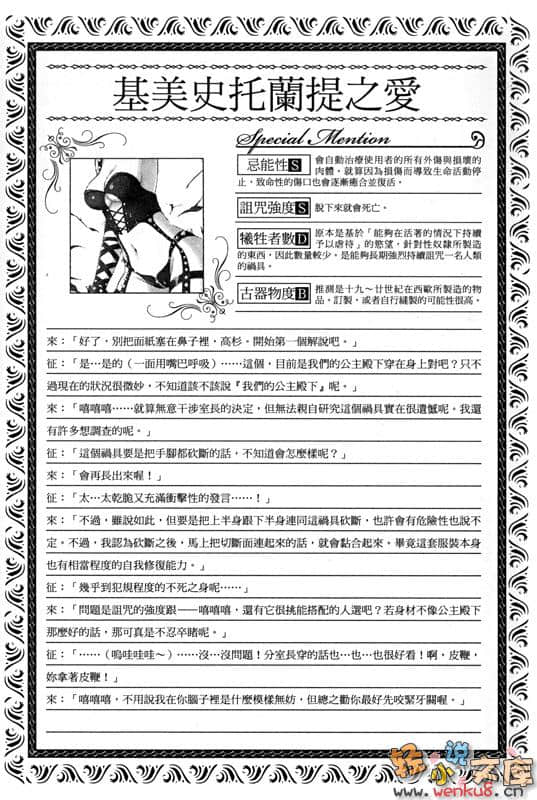 基美史托蘭提之愛
Special Mention
忌能性S
會自動治療使用者的所有外傷與損壞的
肉體。就算因為損傷而導致生命活動停
止，致命性的傷口也會逐漸癒合並復活。
詛咒強度S
脫下來就會死亡。
犧牲者數D
原本是基於「能夠在活著的情況下持續
予以虐待」的慾望，針對性奴隸所製造
的東西，因此數量較少。是能夠長期強烈持續詛咒一名人類
的禍具。
古器物度B
推測是十九～廿世紀在西歐所製造的物
品。訂製，或者自行縫製的可能性很高。
來：「好了，別把面紙塞在鼻子裡，高杉。開始第一個解說吧。」
征：「是…是的（一面用嘴巴呼吸）……這個，目前是我們的公主殿下穿在身上對吧？只不
過現在的狀況很微妙，不知道該不該說『我們的公主殿下』呢。」
來：「嘻嘻嘻……就算無意干涉室長的決定，但無法親自研究這個禍具實在很遺憾呢。我還
有許多想調查的呢。」
征：「這個禍具要是把手腳都砍斷的話，不知道會怎麼樣呢？」
來：「會再長出來喔！」
征：「太…太乾脆又充滿衝擊性的發言……！」
來：「不過，雖說如此，但要是把上半身跟下半身連同這禍具砍斷，也許會有危險性也說不
定。不過，我認為砍斷之後，馬上把切斷面連起來的話，就會黏合起來。畢竟這套服裝本身
也有相當程度的自我修復能力。」
征：「幾乎到犯規程度的不死之身呢……」
來：「問題是詛咒的強度跟——嘻嘻嘻，還有它很挑能搭配的人選吧？若身材不像公主殿下
那麼好的話，那可真是不忍卒睹呢。」
征：「……（嗚哇哇哇～）……沒…沒問題！分室長穿的話也…也…也很好看！啊，皮鞭！
妳拿著皮鞭！」
來：「嘻嘻嘻。不用說我在你腦子裡是什麼模樣無妨，但總之勸你最好先咬緊牙關喔。」
轻小说文库
www.wenku8.cn